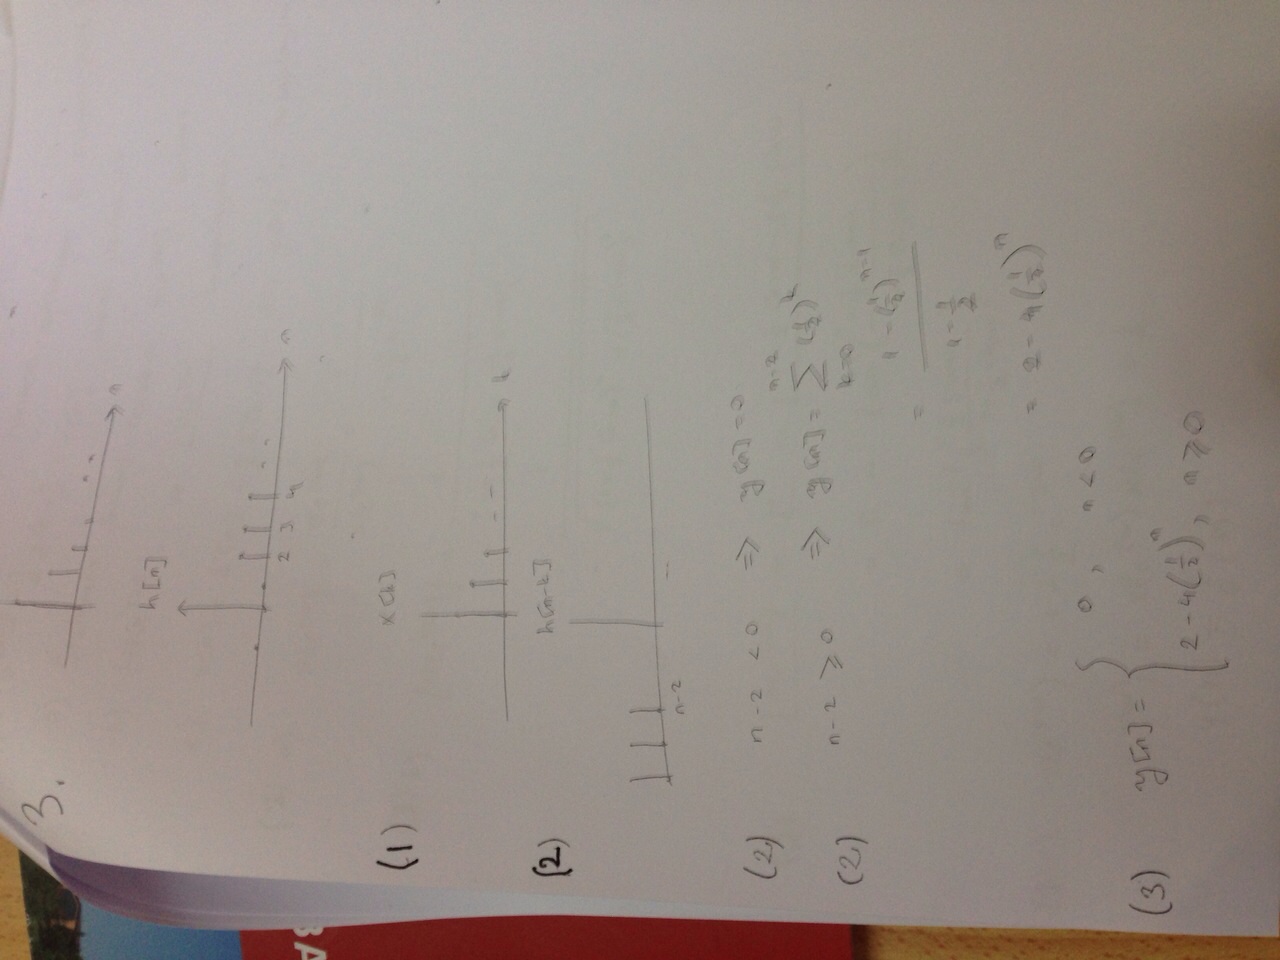 3.
n
h[n]
2 3 4
n
(1) x[k]
k
(2) h[n-k]
n-2
(2) n-2 < 0 ⇒ y[n] = 0
(2) n-2 ≥ 0 ⇒ y[n] = ∑_{k=0}^{n-2} (1/2)^k
= (1 - (1/2)^{n-1}) / (1 - 1/2)
= 2 - 4(1/2)^n
(3) y[n] = { 0 , n < 0
2 - 4(1/2)^n , n ≥ 0
BA